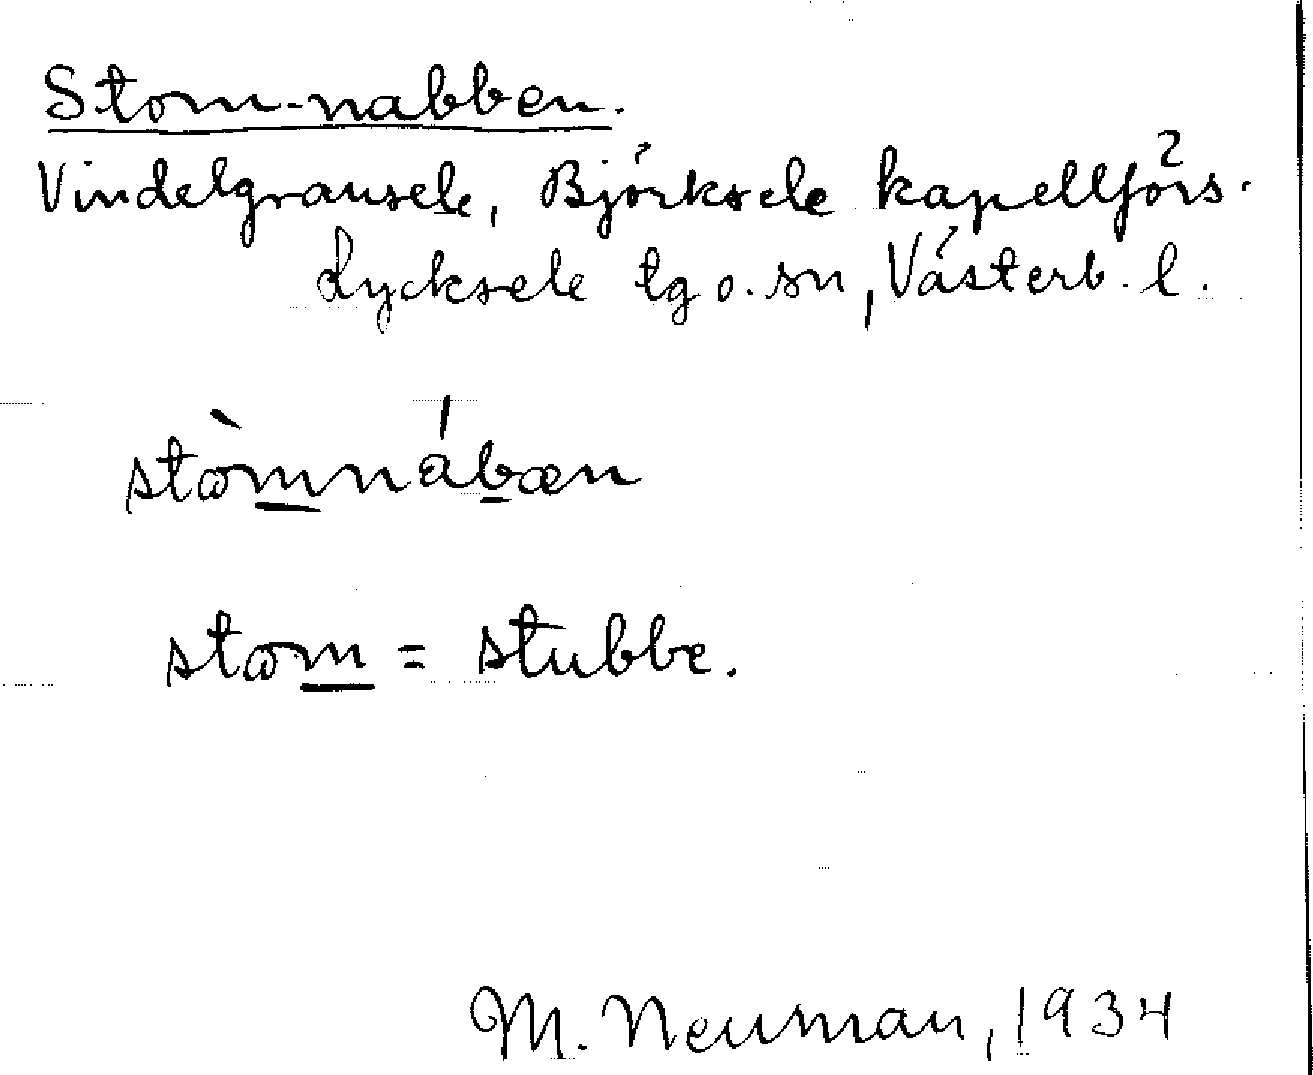 Stom-nabben.
Vindelgransele, Björksele kapellförs.
Lycksele tg o. sn, Västerb. l.
stòmnábæn
stom = stubbe.
M. Neuman, 1934